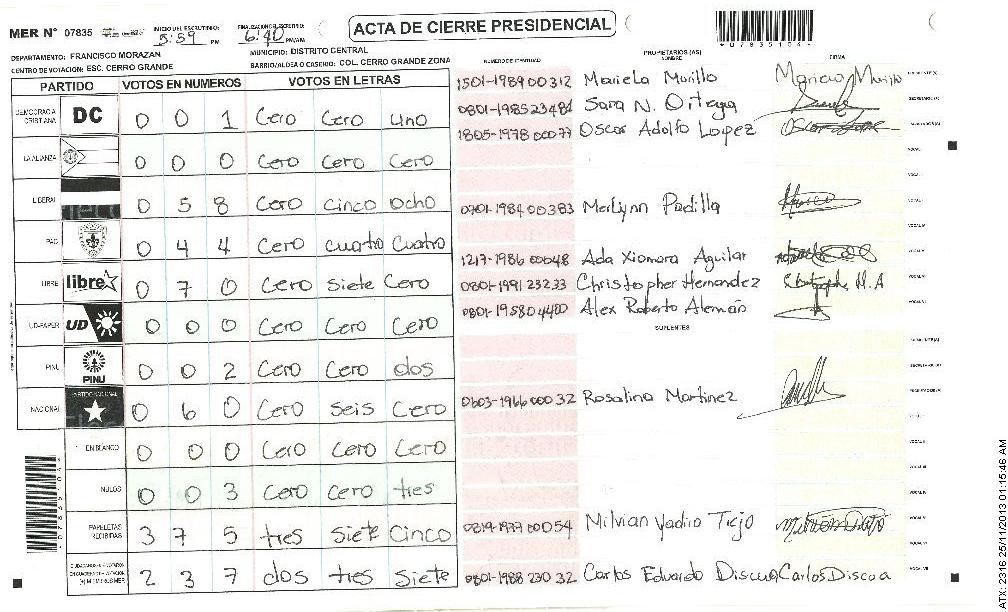 MER N° 07835
INICIO DEL ESCRUTINIO: 5:59 PM
FINALIZACION DEL ESCRUTINIO: 6:40 PM/AM
ACTA DE CIERRE PRESIDENCIAL
DEPARTAMENTO: FRANCISCO MORAZAN
MUNICIPIO: DISTRITO CENTRAL
CENTRO DE VOTACION: ESC. CERRO GRANDE
BARRIO/ALDEA O CASERIO: COL. CERRO GRANDE ZONA
PARTIDO VOTOS EN NUMEROS VOTOS EN LETRAS
DEMOCRACIA CRISTIANA DC 0 0 1 Cero Cero uno
LA ALIANZA 0 0 0 Cero Cero Cero
LIBERAL 0 5 8 Cero Cinco Ocho
PAC 0 4 4 Cero cuatro Cuatro
LIBRE libre 0 7 0 Cero Siete Cero
UD-FAPER UD 0 0 0 Cero Cero Cero
PINU PINU 0 0 2 Cero Cero dos
NACIONAL PARTIDO NACIONAL 0 6 0 Cero Seis Cero
EN BLANCO 0 0 0 Cero Cero Cero
NULOS 0 0 3 Cero Cero tres
PAPELETAS RECIBIDAS 3 7 5 tres Siete Cinco
2 3 7 dos tres Siete
NUMERO DE IDENTIDAD PROPIETARIOS (AS) NOMBRE FIRMA
1501-1989 00312 Mariela Murillo
0801-1985 23484 Sara N. Ortega
1805-1978 00077 Oscar Adolfo Lopez
0801-1984 00383 Merlynn Padilla
1217-1986 00048 Ada Xiomara Aguilar
0801-1991 23233 Christopher Hernandez
0801-1958 04400 Alex Roberto Alemán
SUPLENTES
0603-1966 000 32 Rosalina Martinez
0819-1977 00054 Milvian Yadira Tejo
0801-1988 230 32 Carlos Eduardo Discua Carlos Discoa
*07835104*
ATX: 2316 25/11/2013 01:15:46 AM